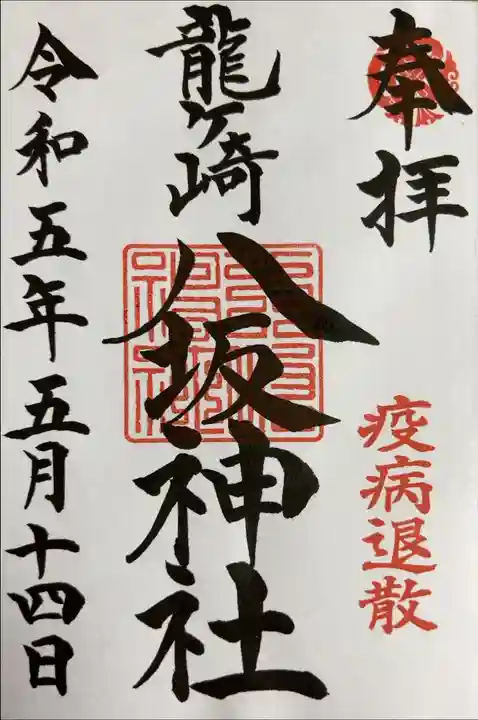 奉拝
疫病退散
龍ヶ崎
八坂神社
令和五年五月十四日